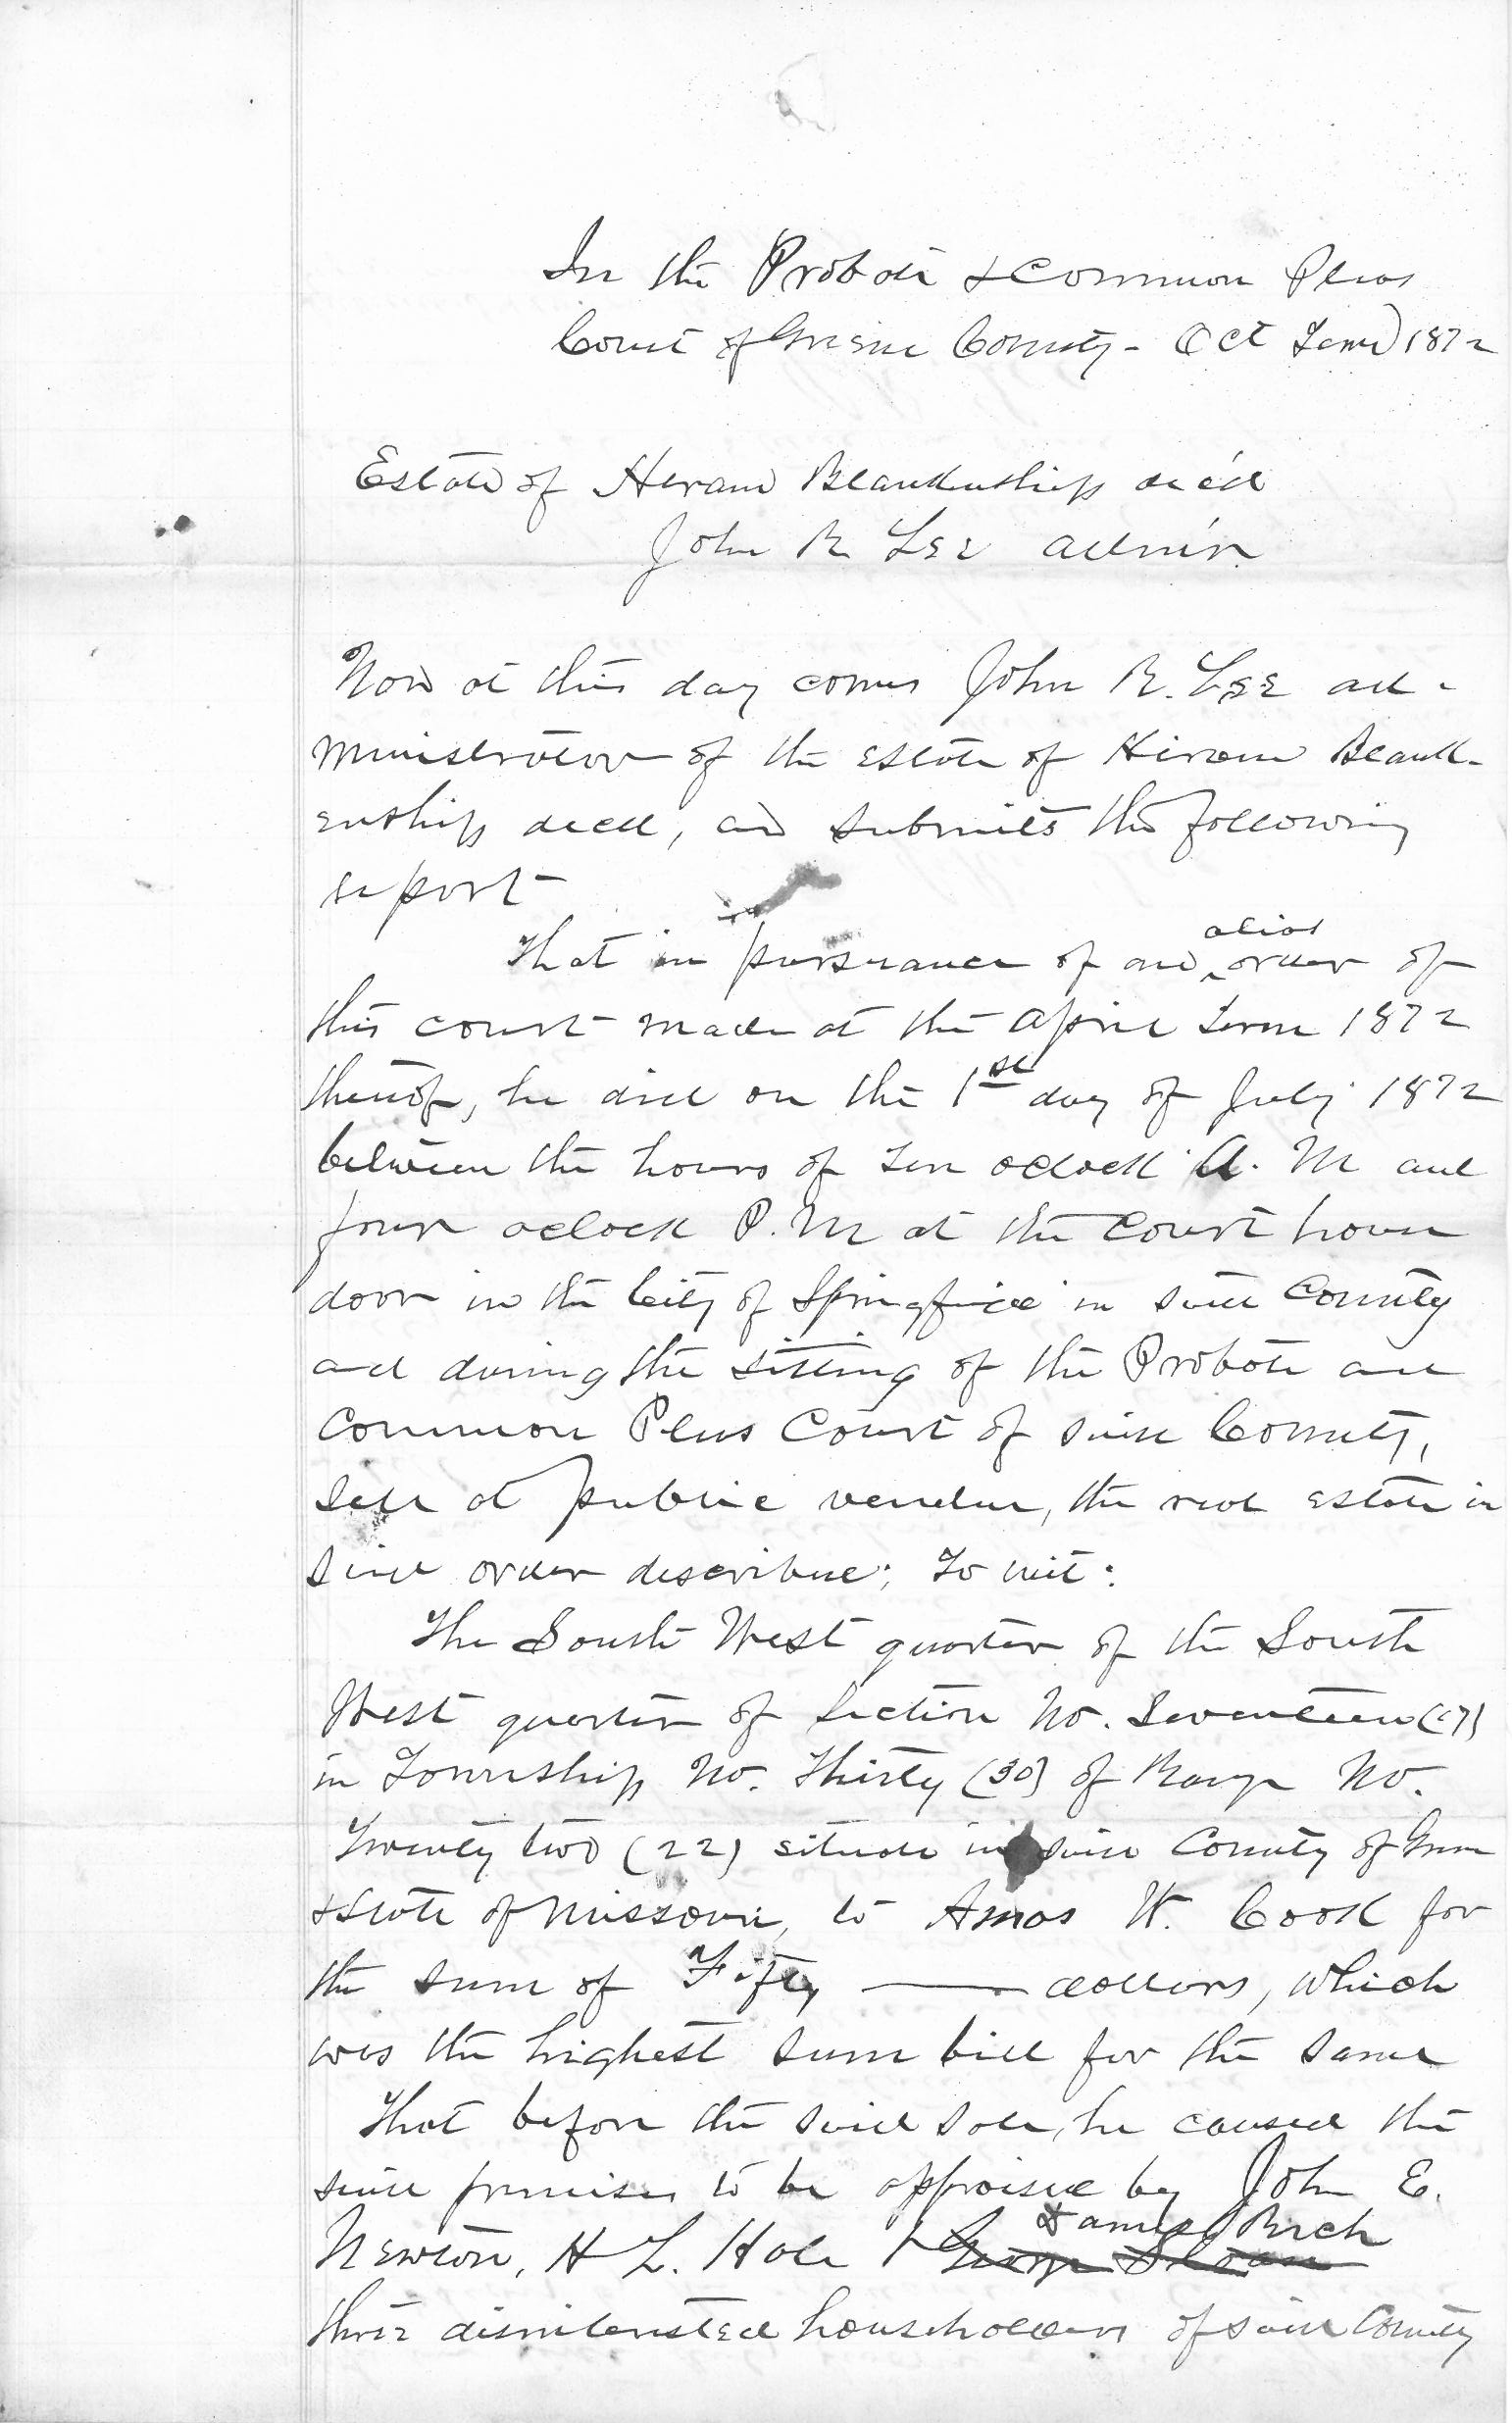 In the Probate & Common Pleas
Court of Greene County - Oct Term 1872
Estate of Hiram Blankenship dec'd
John R Lee Adm'r
Now at this day comes John R. Lee ad-
ministrator of the estate of Hiram Blank-
enship decd, and submits the following
report
That in pursuance of an alias order of
this court made at the April Term 1872
thereof, he did on the 1st day of July 1872
between the hours of ten oclock A. M and
four oclock P. M at the Court house
door in the City of Springfield in said County
and during the sitting of the Probate and
Common Pleas Court of said County,
sell at public vendue, the real estate in
said order described; To wit:
The South West quarter of the South
West quarter of Section No. Seventeen (17)
in Township No. Thirty (30) of Range No.
Twenty two (22) situate in said County of Greene
& State of Missouri, to Amos W. Cook for
the sum of Fifty —— dollars, which
was the highest sum bid for the same
That before the said sale, he caused the
said premises to be appraised by John E.
Newton, H L. Hale & George Sloan James Burch
three disinterested householders of said County